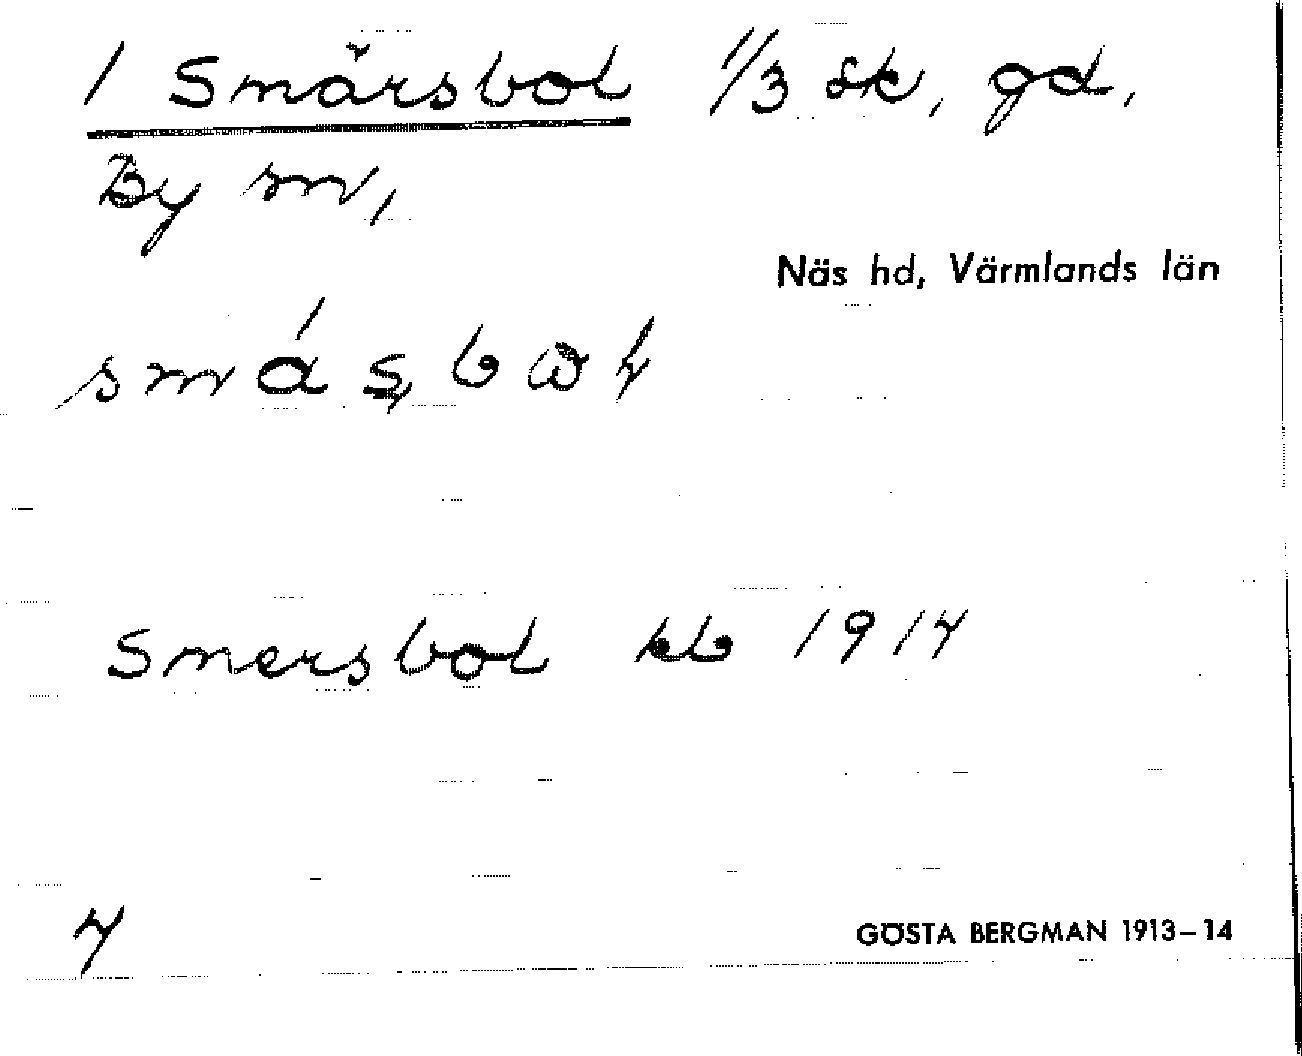 1 Smärsbol 1/3 sk, gd,
By sn,
Näs hd, Värmlands län
Smersbol kb 1914
4
GÖSTA BERGMAN 1913–14